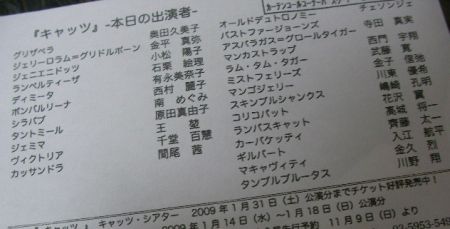 『キャッツ』-本日の出演者-
グリザベラ 奥田久美子
ジェリーロラム=グリドルボーン 金平 真弥
ジェニエニドッツ 小松 陽子
ランペルティーザ 石栗 絵理
ディミータ 有永美奈子
ボンバルリーナ 西村 麗子
シラバブ 南 めぐみ
タントミール 原田真由子
ジェミマ 王 堃
ヴィクトリア 千堂 百慧
カッサンドラ 間尾 茜
オールドデュトロノミー チェソンジェ
バストファージョーンズ
アスパラガス=グロールタイガー 寺田 真実
マンカストラップ 西門 宇翔
ラム・タム・タガー 武藤 寛
ミストフェリーズ 金子 信弛
マンゴジェリー 川東 優希
スキンブルシャンクス 嶋崎 孔明
コリコパット 花沢 翼
ランパスキャット 高城 将一
カーバケッティ 齊藤 太一
ギルバート 入江 航平
マキャヴィティ 金久 烈
タンブルブルータス 川野 翔
キャッツ・シアター 2009年1月31日(土)公演分までチケット好評発売中!
2009年1月14日(水)~1月18日(日)公演分
先行予約 11月9日(日)より
03-5953-549